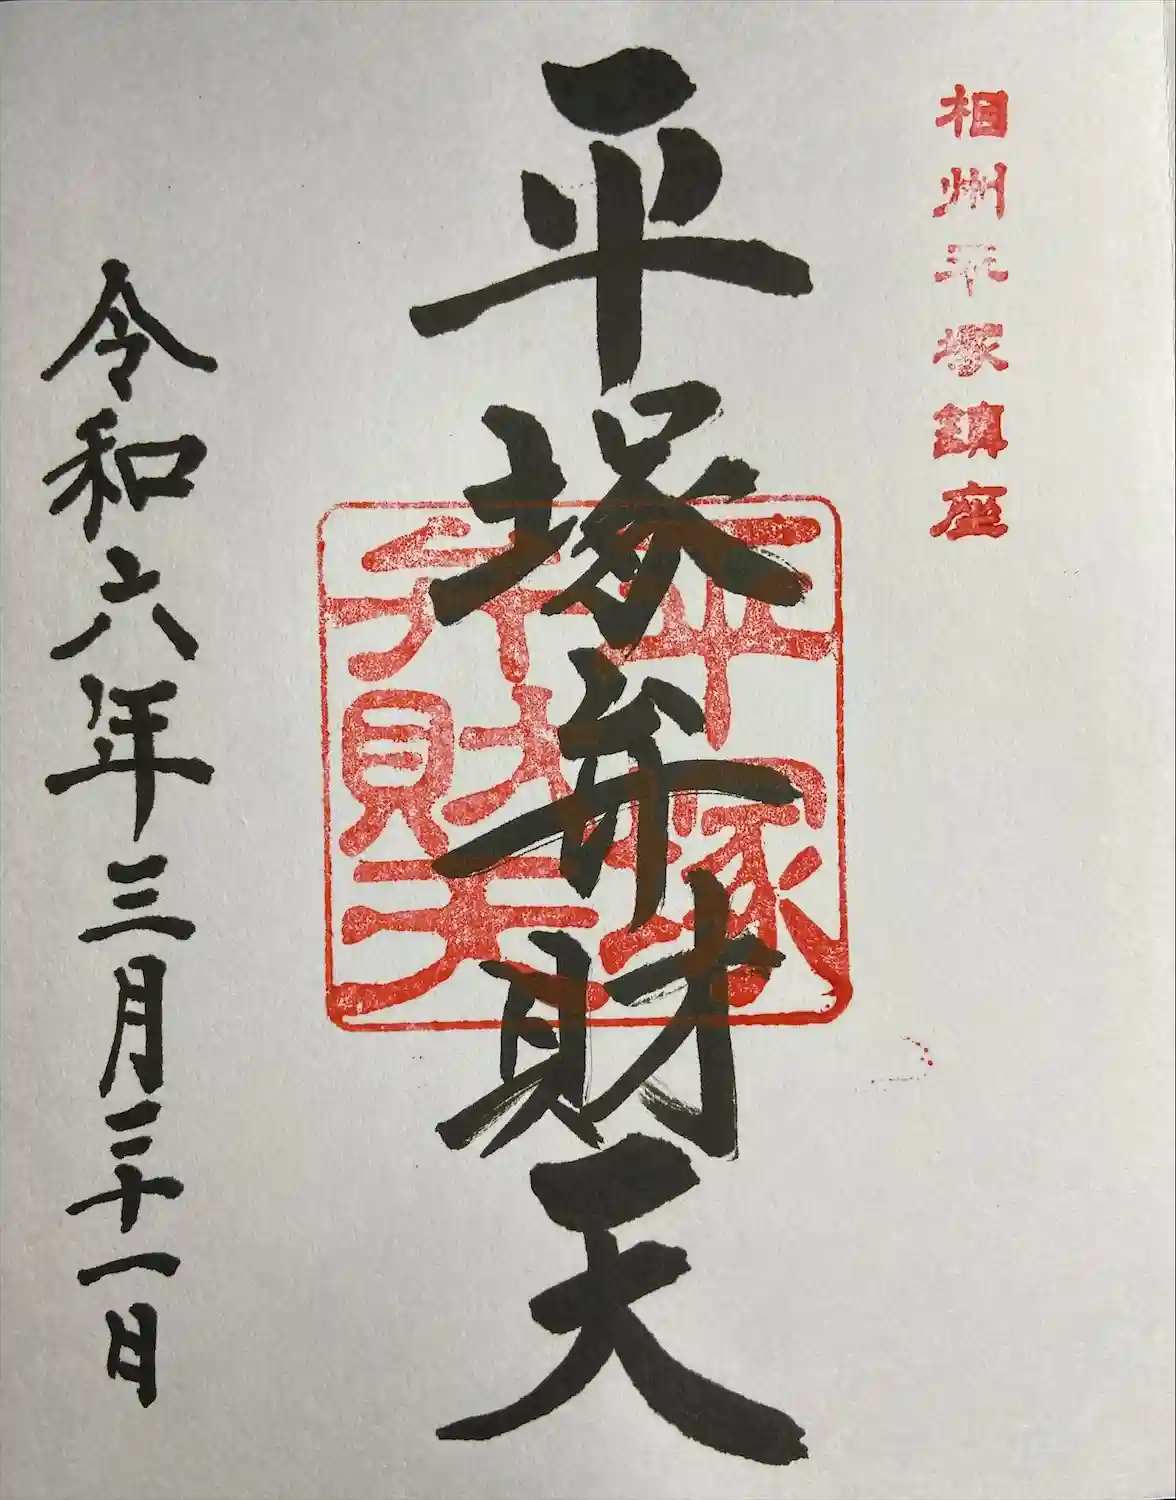 相州平塚鎮座
平塚弁財天
平塚
弁財天
令和六年三月二十一日